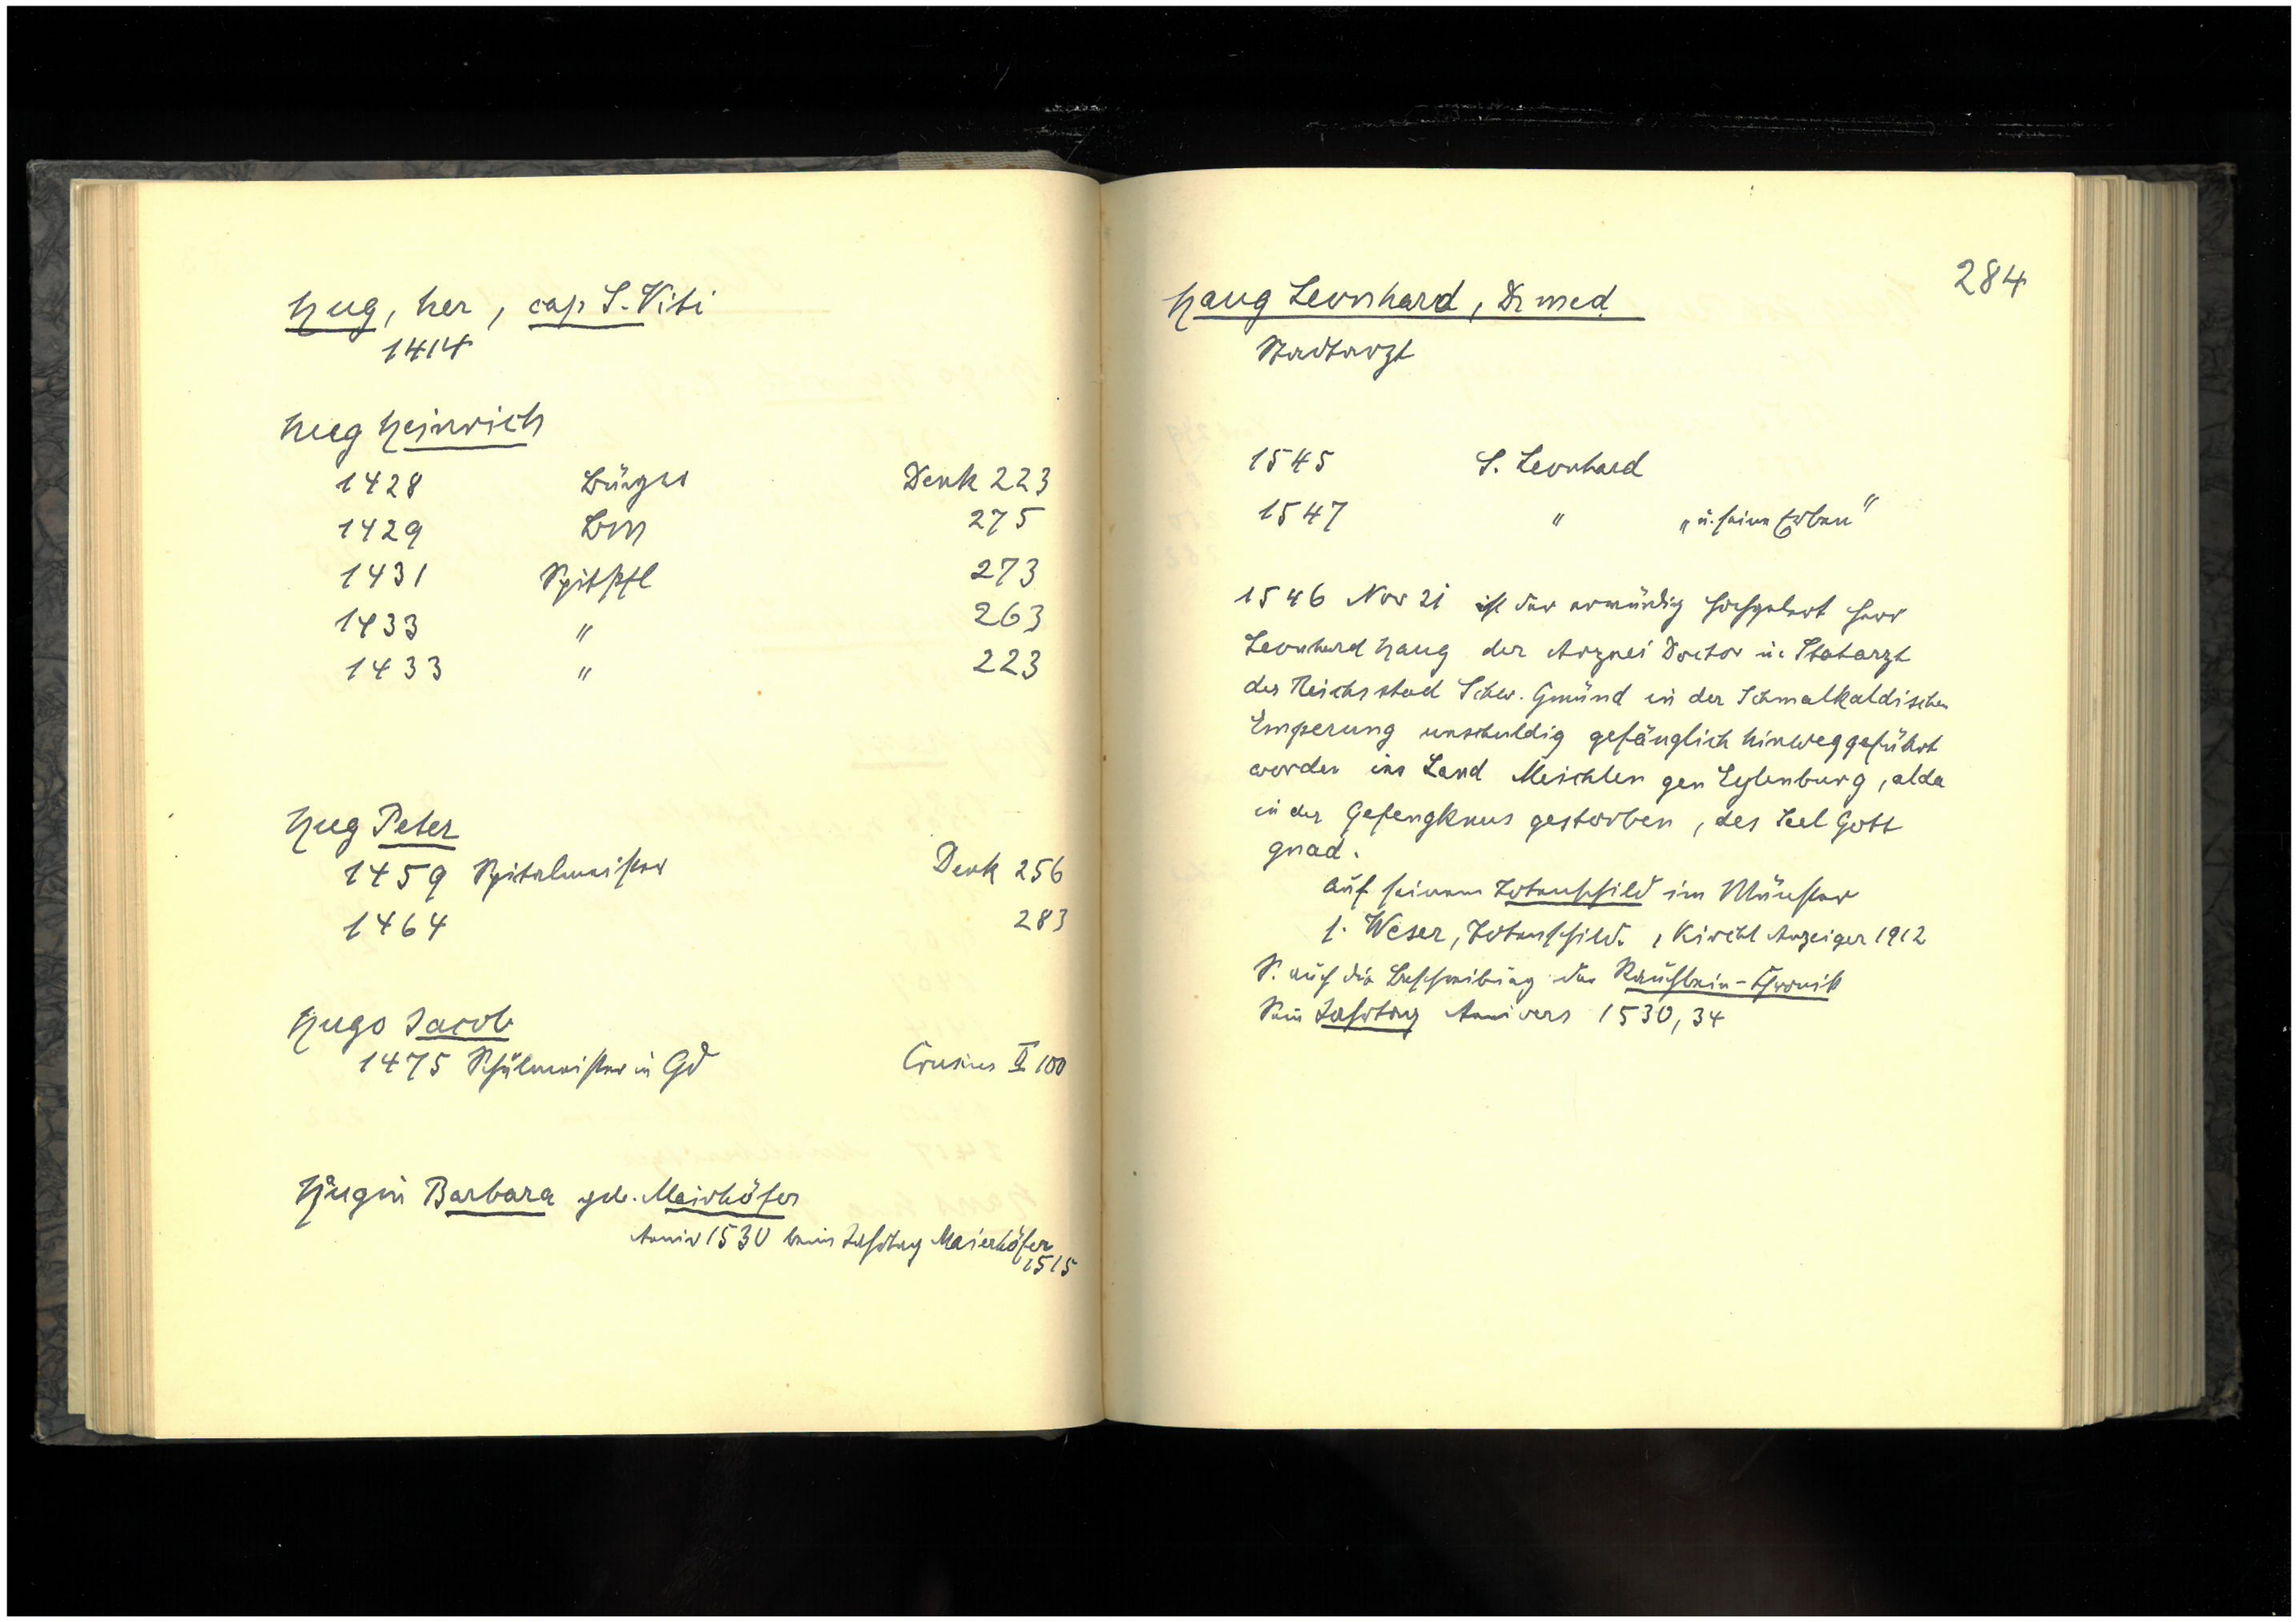 Hug, her, cap S. Viti
1414
Hug Heinrich
1428 Bürger Denk 223
1429 BM 275
1431 Spitpfl 273
1433 " 263
1433 " 223
Hug Peter
1459 Spitalmeister Denk 256
1464 283
Hugo Jacob
1475 Schulmeister in Gd Crusius II 100
Hugin Barbara geb. Mairhöfer
Anniv 1530 beim Jahrtag Maierhöfer
1515
284
Haug Leonhard, Dr med
Stadtarzt
1545 S. Leonhard
1547 " „u. seine Erben"
1546 Nov 21 ist der erwürdig hochgelert Herr
Leonhard Haug der Arznei Doctor u. Statarzt
der Reichsstad Schw. Gmünd in der Schmalkaldischen
Emperung unschuldig gefänglich hinweggeführt
worden ins Land Meichlen gen Eylenburg, alda
in der Gefengknus gestorben, des Seel Gott
gnad.
auf seinem Totenschild im Münster
s. Weser, Totenschild. , Kirchl Anzeiger 1912
S. auch die Beschreibung der Rauchbein-Chronik
Sein Jahrtag Annivers 1530, 34